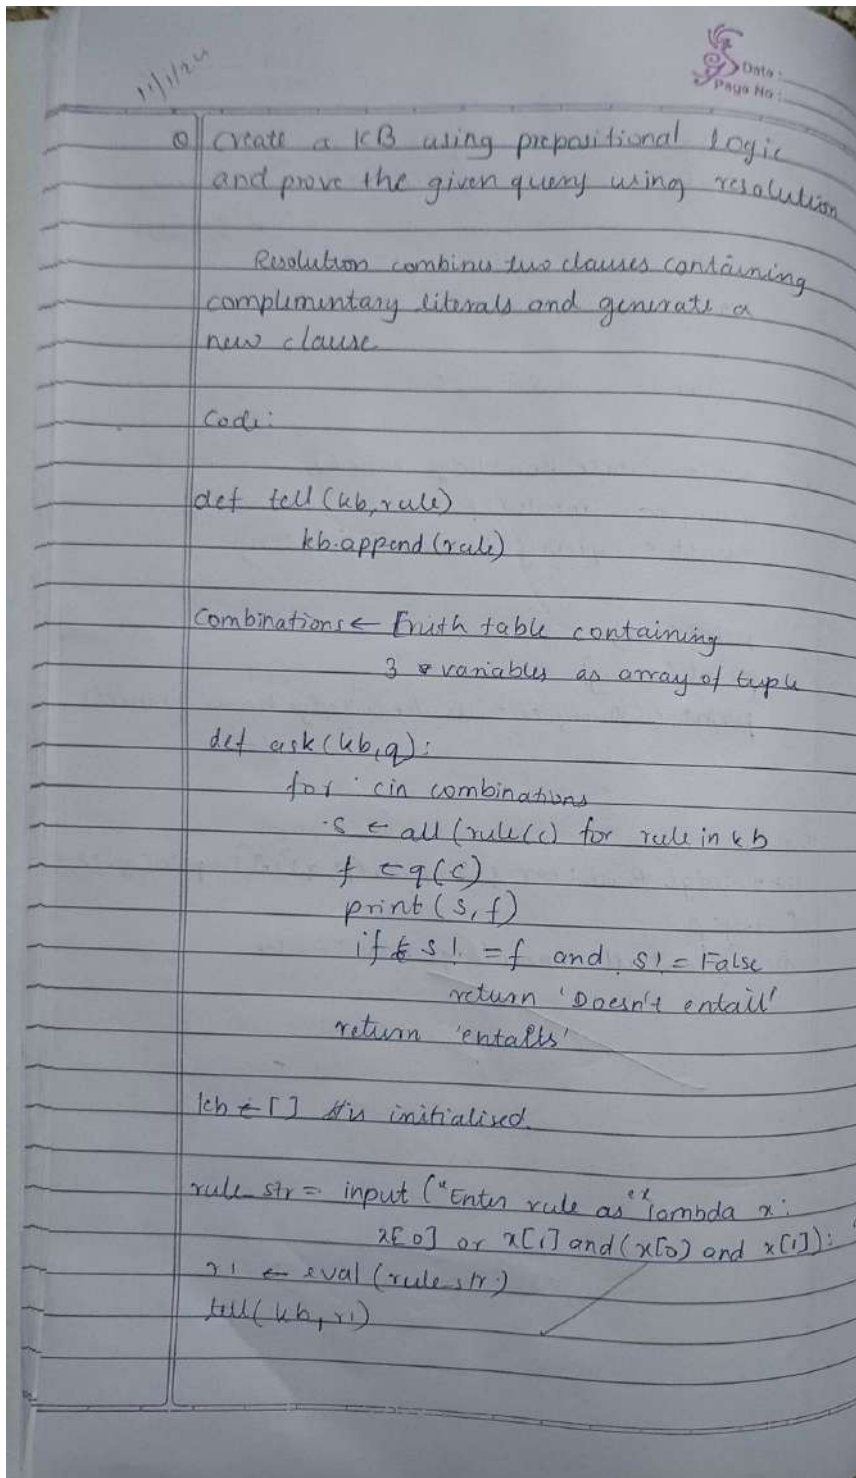 11/1/24
Date:
Page No:
Q Create a KB using prepositional logic
and prove the given query using resolution
Resolution combines two clauses containing
complimentary literals and generate a
new clause
Code:
def tell(kb, rule)
kb.append(rule)
Combinations ← Truth table containing
3 variables as array of tuple
def ask(kb, q):
for c in combinations
s ← all(rule(c) for rule in kb
f ← q(c)
print(s, f)
if s! = f and s! = False
return 'Doesn't entail'
return 'entails'
kb ← [] initialised.
rule_str = input("Enter rule as lambda x:
x[0] or x[1] and (x[0] and x[1]):
r1 ← eval(rule_str)
tell(kb, r1)